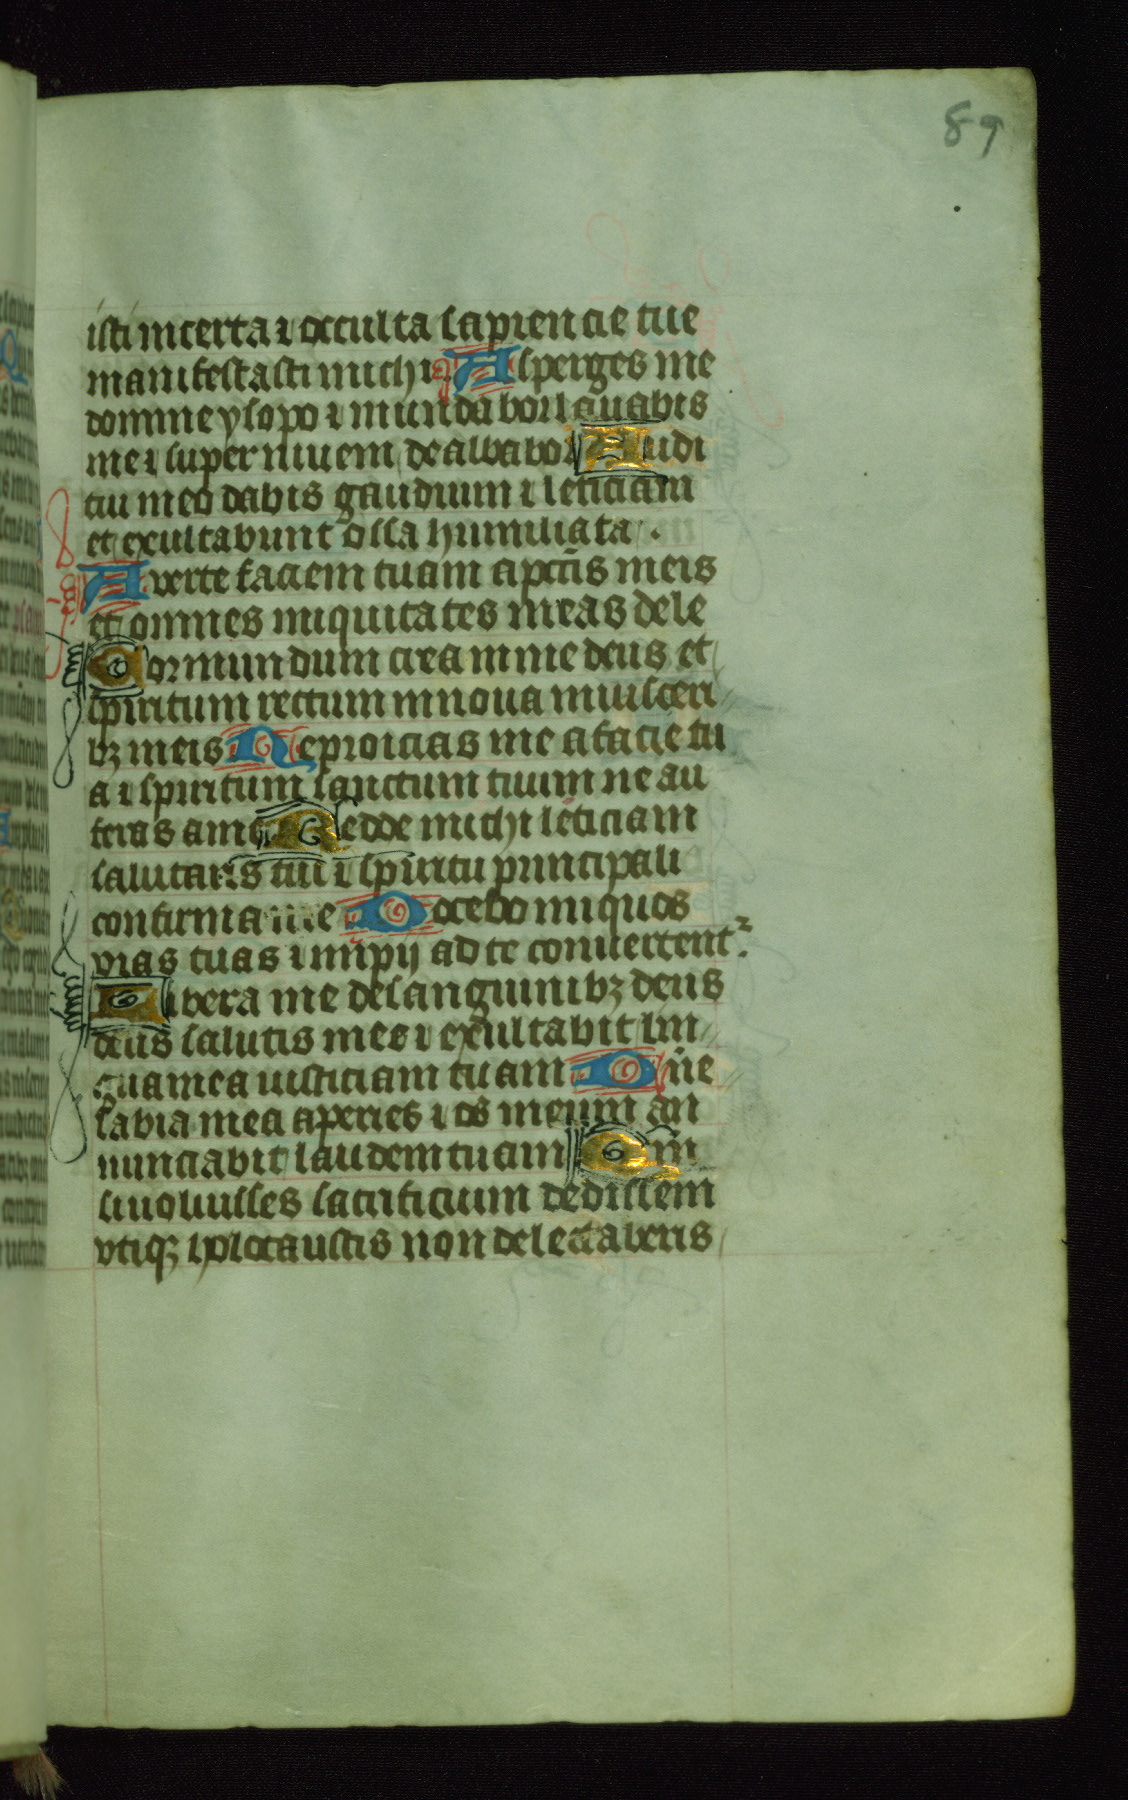 89
isti incerta ⁊ occulta sapiencie tue
manifestasti michi Asperges me
domine ysopo ⁊ mundabor lauabis
me ⁊ super niuem dealbabor Audi
tui meo dabis gaudium ⁊ leticiam
et exultabunt ossa humiliata.
Auerte faciem tuam a pctis meis
et omnes iniquitates meas dele
Cor mundum crea in me deus et
spiritum rectum innoua in uisceri
bꝫ meis Ne proicias me a facie tu
a ⁊ spiritum sanctum tuum ne au
feras a me Redde michi leticiam
salutaris tui ⁊ spiritu principali
confirma me Docebo iniquos
vias tuas ⁊ impij ad te conuertent᷑.
Libera me de sanguinibꝫ deus
deus salutis mee ⁊ exultabit lin
gua mea iusticiam tuam Dn̄e
labia mea aperies ⁊ os meum an
nunciabit laudem tuam Qm̄
si uoluisses sacrificium dedissem
vtiqꝫ holocaustis non delectaberis